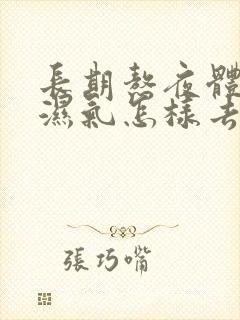 長期熬夜體
濕氣怎樣去
張巧嘴